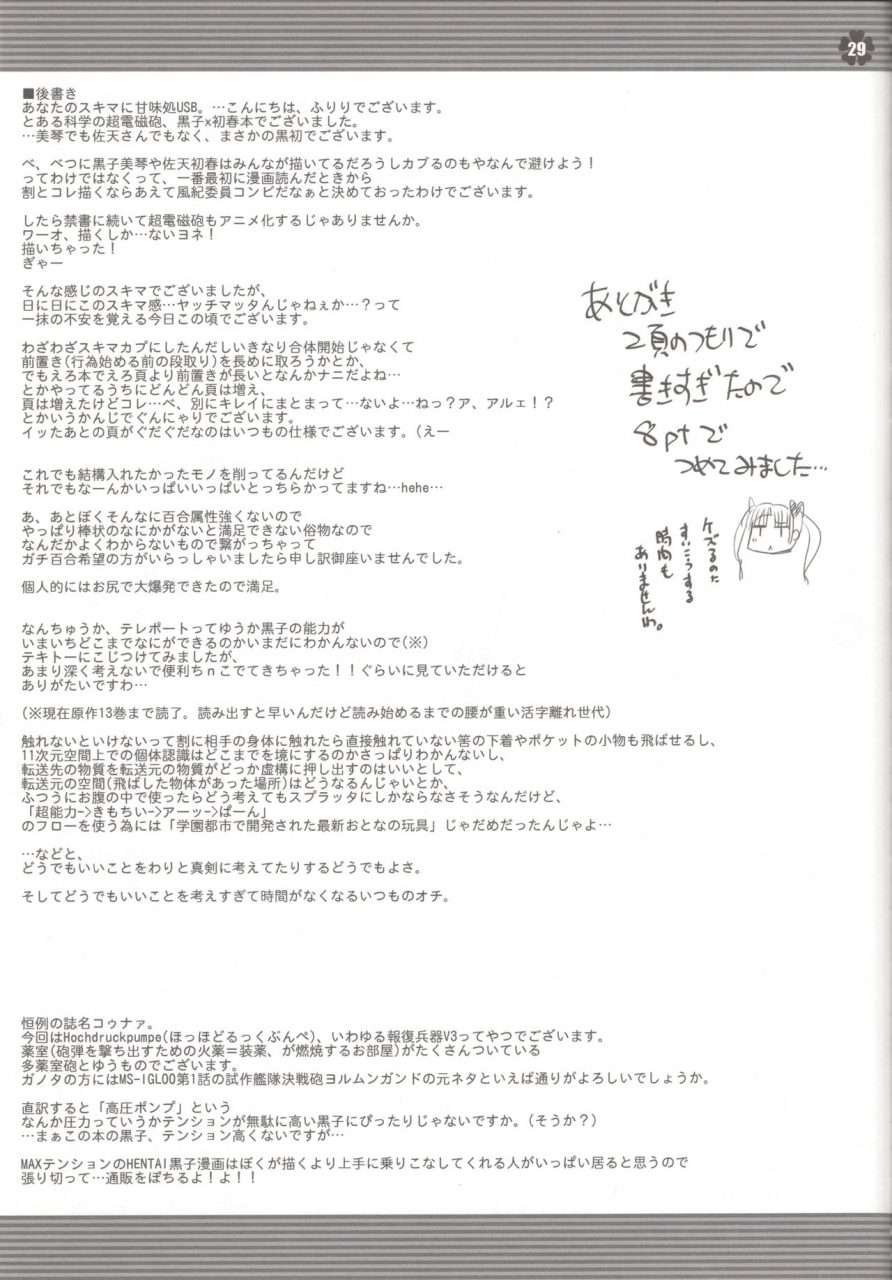 29
■後書き
あなたのスキマに甘味処USB。…こんにちは、ふりりでございます。
とある科学の超電磁砲、黒子x初春本でございました。
…美琴でも佐天さんでもなく、まさかの黒初でございます。
べ、べつに黒子美琴や佐天初春はみんなが描いてるだろうしカブるのもやなんで避けよう！
ってわけではなくって、一番最初に漫画読んだときから
割とコレ描くならあえて風紀委員コンビだなぁと決めておったわけでございます。
したら禁書に続いて超電磁砲もアニメ化するじゃありませんか。
ワーオ、描くしか…ないヨネ！
描いちゃった！
ぎゃー
そんな感じのスキマでございましたが、
日に日にこのスキマ感…ヤッチマッタんじゃねぇか…？って
一抹の不安を覚える今日この頃でございます。
わざわざスキマカプにしたんだしいきなり合体開始じゃなくて
前置き(行為始める前の段取り)を長めに取ろうかとか、
でもえろ本でえろ頁より前置きが長いとなんかナニだよね…
とかやってるうちにどんどん頁は増え、
頁は増えたけどコレ…べ、別にキレイにまとまって…ないよ…ねっ？ア、アルェ！？
とかいうかんじでぐんにゃりでございます。
イッたあとの頁がぐだぐだなのはいつもの仕様でございます。(えー
これでも結構入れたかったモノを削ってるんだけど
それでもなーんかいっぱいいっぱいとっちらかってますね…hehe…
あ、あとぼくそんなに百合属性強くないので
やっぱり棒状のなにかがないと満足できない俗物なので
なんだかよくわからないもので繋がっちゃって
ガチ百合希望の方がいらっしゃいましたら申し訳御座いませんでした。
個人的にはお尻で大爆発できたので満足。
なんちゅうか、テレポートってゆうか黒子の能力が
いまいちどこまでなにができるのかいまだにわかんないので(※)
テキトーにこじつけてみましたが、
あまり深く考えないで便利ちｎこでてきちゃった！！ぐらいに見ていただけると
ありがたいですわ…
(※現在原作13巻まで読了。読み出すと早いんだけど読み始めるまでの腰が重い活字離れ世代)
触れないといけないって割に相手の身体に触れたら直接触れていない筈の下着やポケットの小物も飛ばせるし、
11次元空間上での個体認識はどこまでを境にするのかさっぱりわかんないし、
転送先の物質を転送元の物質がどっか虚構に押し出すのはいいとして、
転送元の空間(飛ばした物体があった場所)はどうなるんじゃいとか、
ふつうにお腹の中で使ったらどう考えてもスプラッタにしかならなさそうなんだけど、
「超能力->きもちい->アーッ->ぱーん」
のフローを使う為には「学園都市で開発された最新おとなの玩具」じゃだめだったんじゃよ…
…などと、
どうでもいいことをわりと真剣に考えてたりするどうでもよさ。
そしてどうでもいいことを考えすぎて時間がなくなるいつものオチ。
あとがき
2頁のつもりで
書きすぎたので
8ptで
つめてみました…
ケズるのに
すいこうする
時間も
ありませんわ。
恒例の誌名コゥナァ。
今回はHochdruckpumpe(ほっほどるっくぶんぺ)、いわゆる報復兵器V3ってやつでございます。
薬室(砲弾を撃ち出すための火薬＝装薬、が燃焼するお部屋)がたくさんついている
多薬室砲とゆうものでございます。
ガノタの方にはMS-IGLOO第1話の試作艦隊決戦砲ヨルムンガンドの元ネタといえば通りがよろしいでしょうか。
直訳すると「高圧ポンプ」という
なんか圧力っていうかテンションが無駄に高い黒子にぴったりじゃないですか。(そうか？)
…まぁこの本の黒子、テンション高くないですが…
MAXテンションのHENTAI黒子漫画はぼくが描くより上手に乗りこなしてくれる人がいっぱい居ると思うので
張り切って…通販をぽちるよ！よ！！